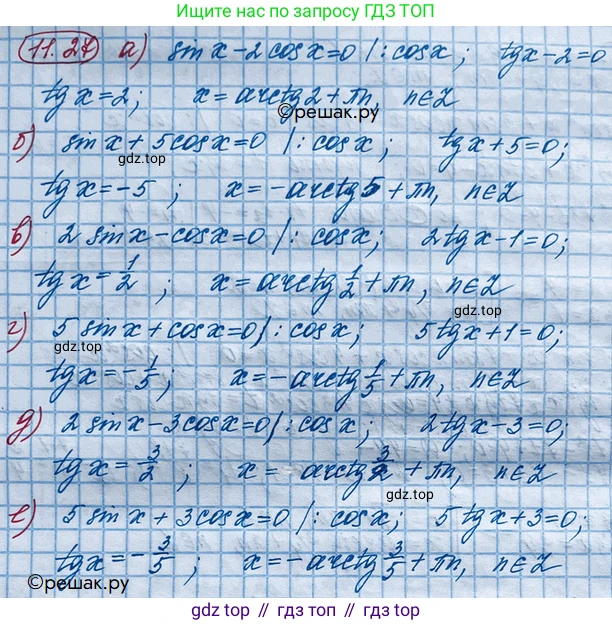 Ищите решение по запросу ГДЗ ТОП
11.27 а) sin x - 2 cos x = 0 |: cos x; tg x - 2 = 0
tg x = 2; x = arctg 2 + πn, n ∈ Z
©решак.ру
б) sin x + 5 cos x = 0 |: cos x; tg x + 5 = 0;
gdz.top
gdz.top
tg x = -5; x = -arctg 5 + πn, n ∈ Z
в) 2 sin x - cos x = 0 |: cos x; 2 tg x - 1 = 0;
tg x = 1/2; x = arctg 1/2 + πn, n ∈ Z
г) 5 sin x + cos x = 0 |: cos x; 5 tg x + 1 = 0;
gdz.top
gdz.top
tg x = -1/5; x = -arctg 1/5 + πn, n ∈ Z
д) 2 sin x - 3 cos x = 0 |: cos x; 2 tg x - 3 = 0;
tg x = 3/2; x = arctg 3/2 + πn, n ∈ Z
gdz.top
е) 5 sin x + 3 cos x = 0 |: cos x; 5 tg x + 3 = 0;
tg x = -3/5; x = -arctg 3/5 + πn, n ∈ Z
gdz.top
©решак.ру
©решак.ру
gdz top // гдз топ // gdz.top